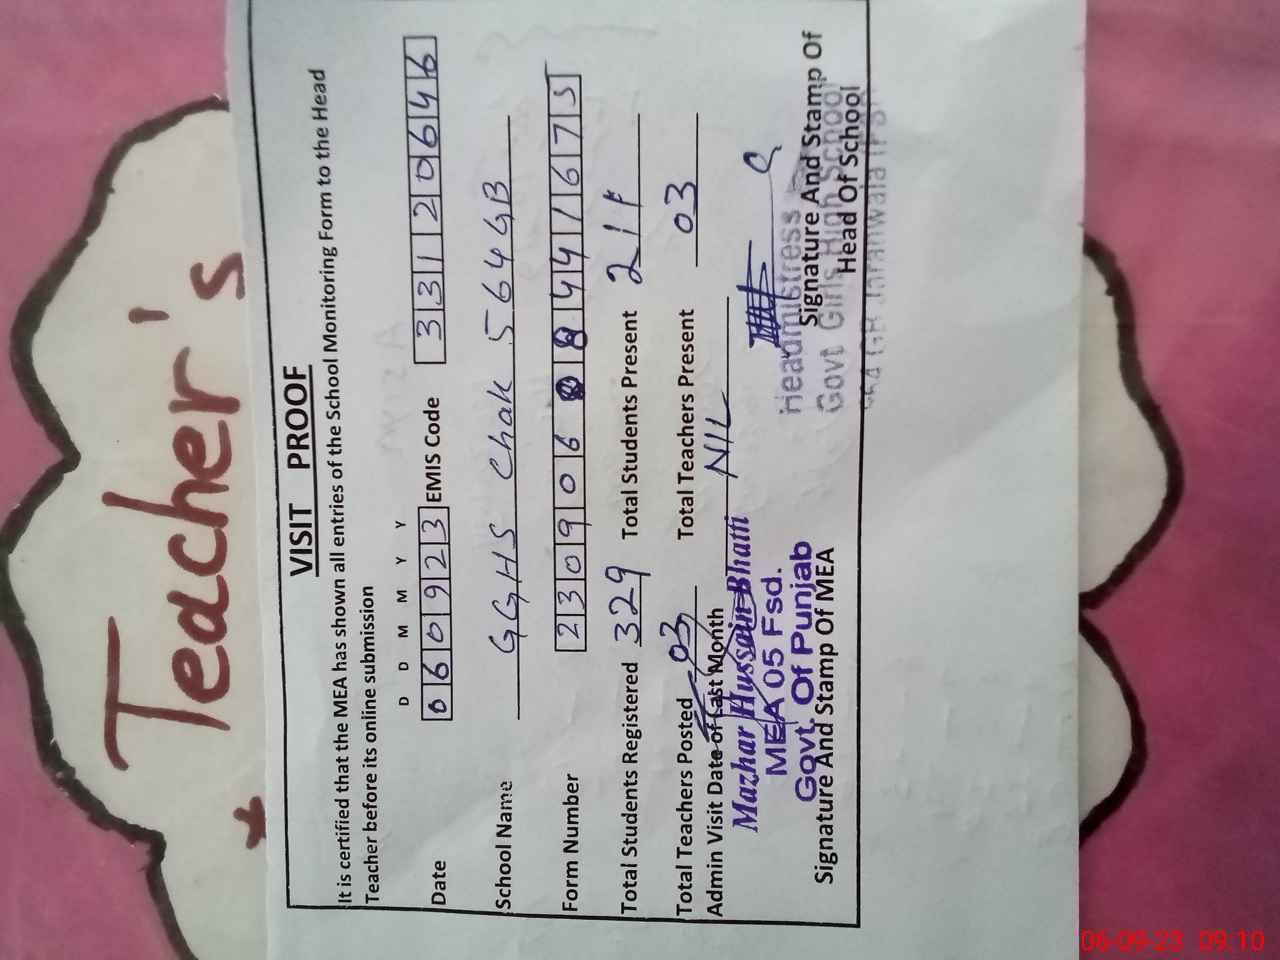 Teacher's
VISIT PROOF
It is certified that the MEA has shown all entries of the School Monitoring Form to the Head
Teacher before its online submission
D D M M Y Y
Date 060923 EMIS Code 33120646
School Name GGHS Chak 564GB
Form Number 230906 8441673
Total Students Registered 329 Total Students Present 211
Total Teachers Posted 03 Total Teachers Present 03
Admin Visit Date of Last Month NIL
Mazhar Hussain Bhatti
MEA 05 Fsd.
Govt. Of Punjab
Signature And Stamp Of MEA
Headmistress
Govt Girls High School
564 GB Jaranwala
Signature And Stamp Of
Head Of School
06-09-23 09:10